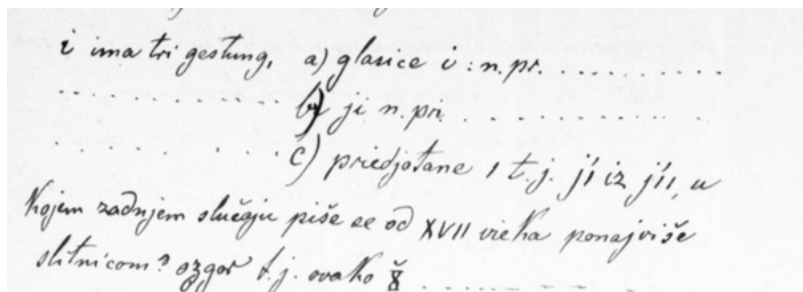 i ima tri gestung, a) glasice i : n.pr. . . . . . . . . . .
. . . . . . . . . . . . b) ji n.pr. . . . . . . . . . . .
. . . . . . . . . c) predjotane i t.j. jí iz jíı, u
kojem zadnjem slučaju piše se od XVII vieka ponajviše
slitnicom? ozgor t.j. ovako . . . . . . . . .